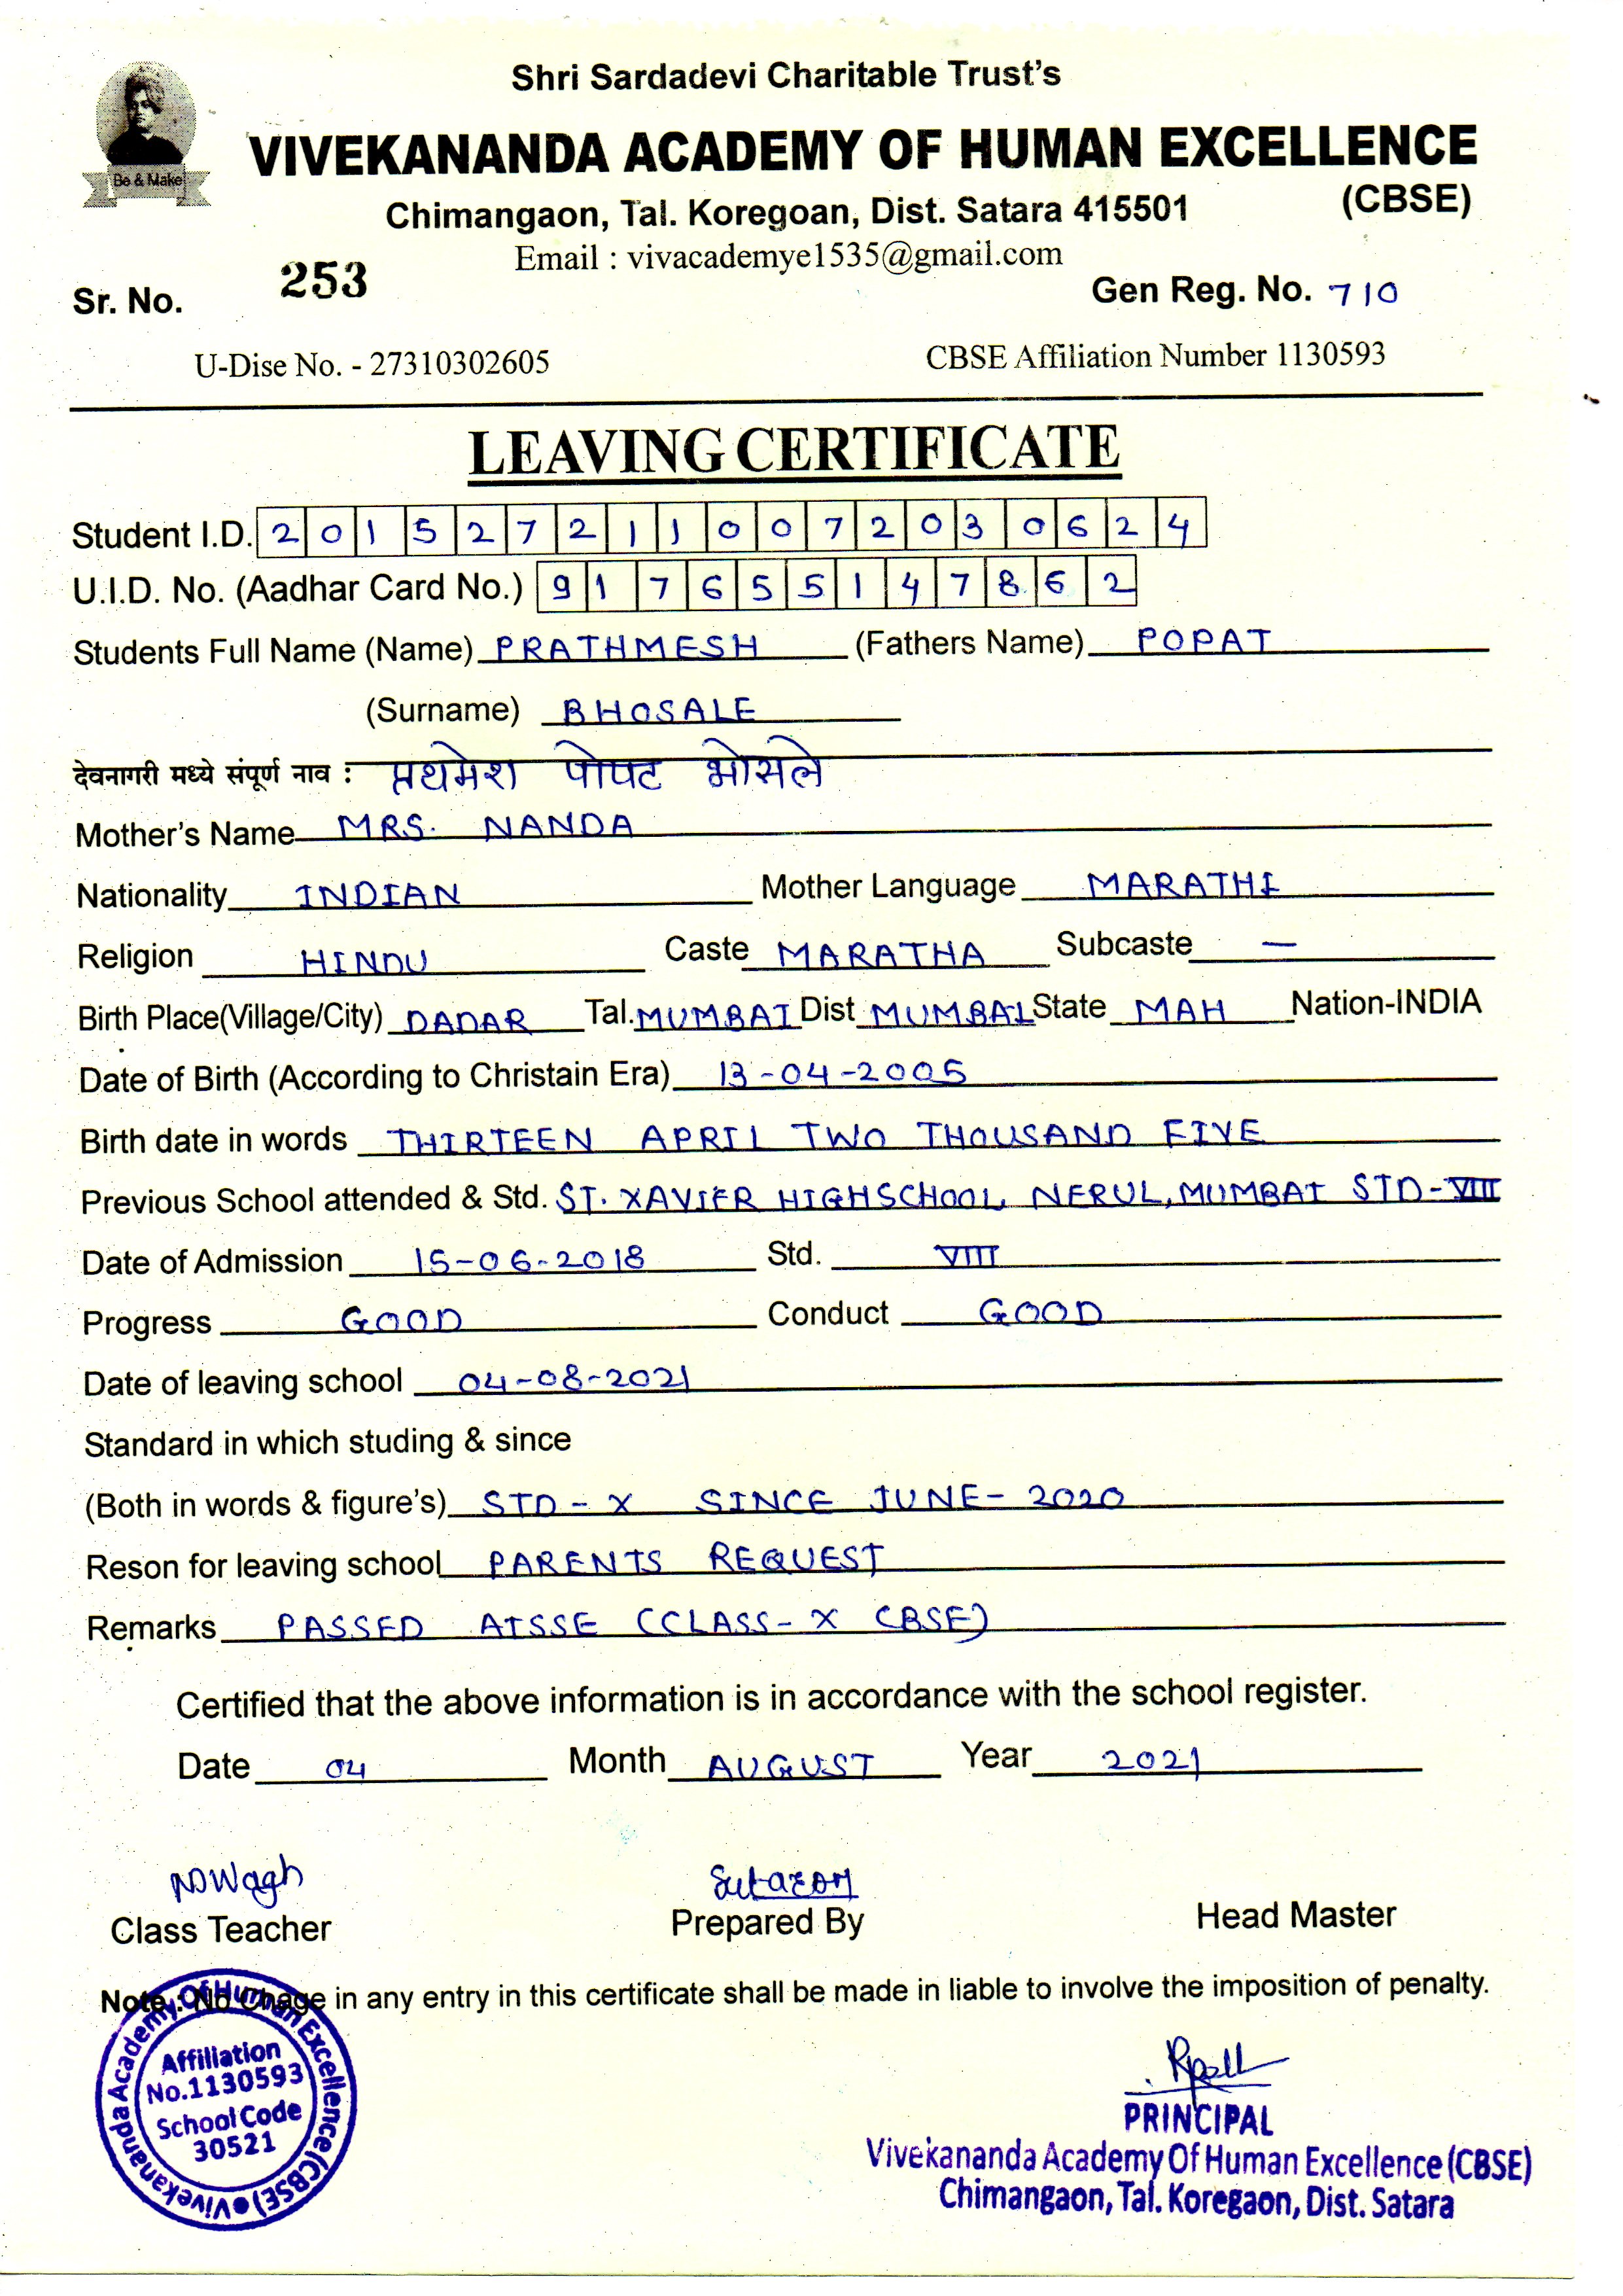 Shri Sardadevi Charitable Trust's
Be & Make
VIVEKANANDA ACADEMY OF HUMAN EXCELLENCE
(CBSE)
Chimangaon, Tal. Koregoan, Dist. Satara 415501
Email : vivacademye1535@gmail.com
Sr. No. 253 Gen Reg. No. 710
U-Dise No. - 27310302605 CBSE Affiliation Number 1130593
LEAVING CERTIFICATE
Student I.D. 2015272110072030624
U.I.D. No. (Aadhar Card No.) 917655147862
Students Full Name (Name) PRATHMESH (Fathers Name) POPAT
(Surname) BHOSALE
देवनागरी मध्ये संपूर्ण नाव : प्रथमेश पोपट भोसले
Mother's Name MRS. NANDA
Nationality INDIAN Mother Language MARATHI
Religion HINDU Caste MARATHA Subcaste —
Birth Place(Village/City) DADAR Tal. MUMBAI Dist MUMBAI State MAH Nation-INDIA
Date of Birth (According to Christain Era) 13-04-2005
Birth date in words THIRTEEN APRIL TWO THOUSAND FIVE
Previous School attended & Std. ST. XAVIER HIGHSCHOOL, NERUL, MUMBAI STD-VIII
Date of Admission 15-06-2018 Std. VIII
Progress GOOD Conduct GOOD
Date of leaving school 04-08-2021
Standard in which studing & since
(Both in words & figure's) STD - X SINCE JUNE- 2020
Reson for leaving school PARENTS REQUEST
Remarks PASSED AISSE (CLASS-X CBSE)
Certified that the above information is in accordance with the school register.
Date 04 Month AUGUST Year 2021
NDWagh
Class Teacher Prepared By Head Master
Note : No Chage in any entry in this certificate shall be made in liable to involve the imposition of penalty.
Vivekananda Academy Of Human Excellence (CBSE)
Affiliation
No.1130593
School Code
30521
PRINCIPAL
Vivekananda Academy Of Human Excellence (CBSE)
Chimangaon, Tal. Koregaon, Dist. Satara